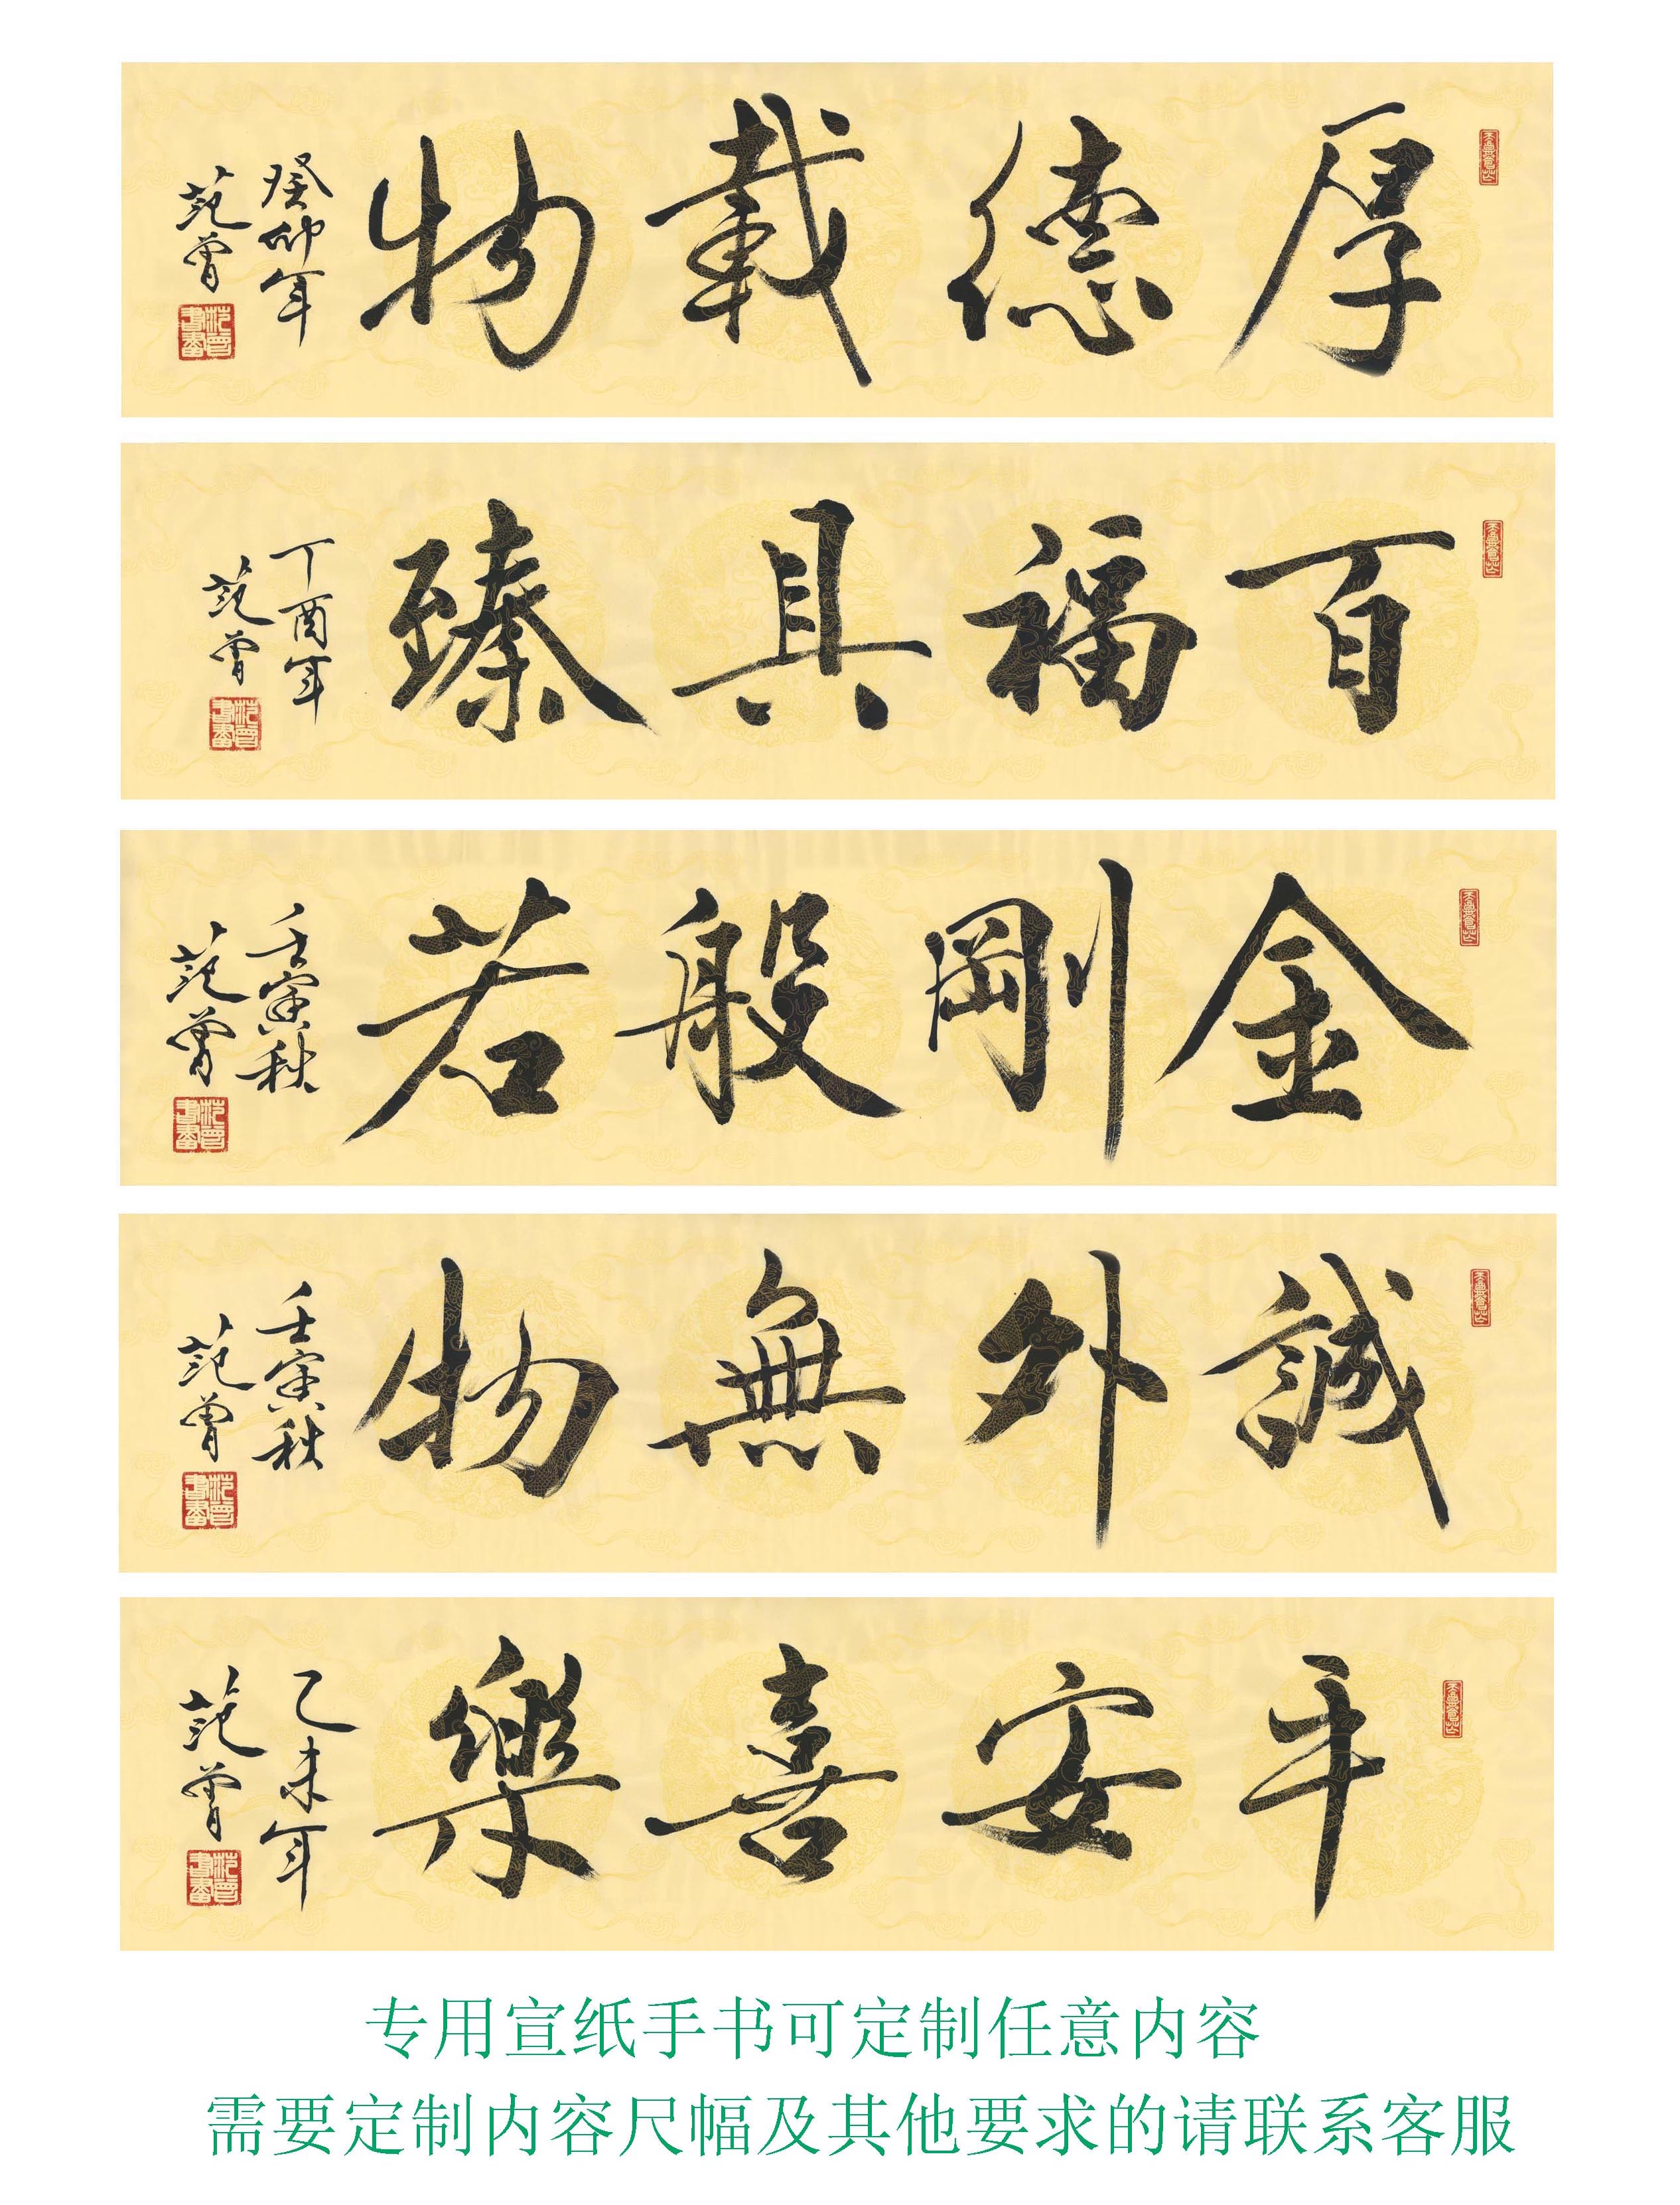 厚德載物
癸卯年
范曾
百福具臻
丁酉年
范曾
金剛般若
壬寅秋
范曾
誠外無物
壬寅秋
范曾
平安喜樂
乙未年
范曾
专用宣纸手书可定制任意内容
需要定制内容尺幅及其他要求的请联系客服